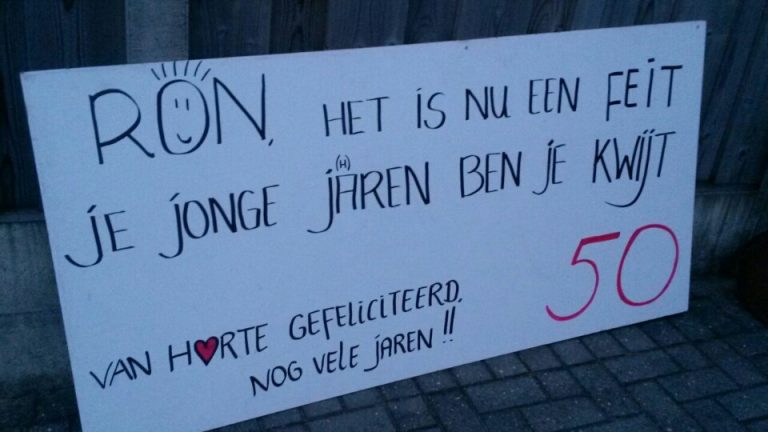 RON, HET IS NU EEN FEIT
JE JONGE J(H)AREN BEN JE KWIJT
50
VAN H♥RTE GEFELICITEERD,
NOG VELE JAREN !!